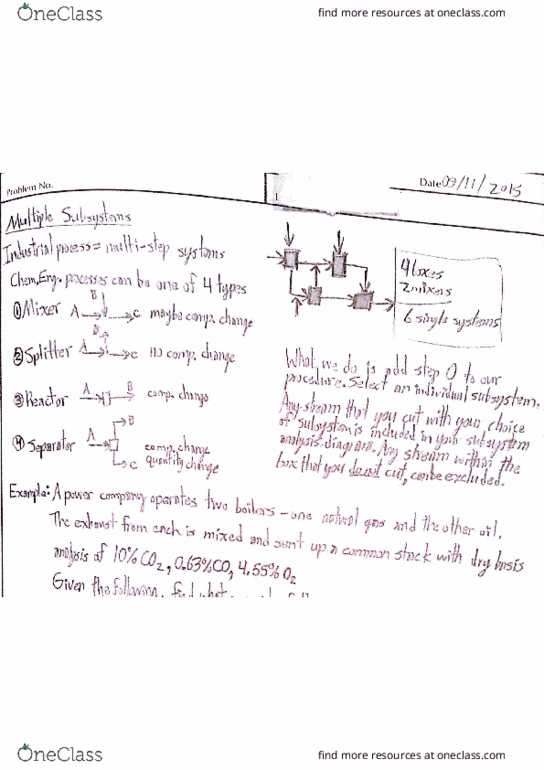 OneClass
find more resources at oneclass.com
Problem No.
1
Date 09/11/2015
Multiple Subsystems
Industrial process = multi-step systems
Chem. Eng. processes can be one of 4 types
① Mixer A B C maybe comp. change
② Splitter A B C no comp. change
③ Reactor A B comp. change
④ Separator A B C comp. change
quantity change
4 boxes
2 mixers
6 single systems
What we do is add step 0 to our
procedure. Select an individual subsystem.
Any stream that you cut with your choice
of subsystem is included in your subsystem
analysis diagram. Any stream within the
box that you do not cut, can be excluded.
Example: A power company operates two boilers - one natural gas and the other oil.
The exhaust from each is mixed and sent up a common stack with dry basis
analysis of 10% CO2, 0.63% CO, 4.55% O2
Given the following, find what
OneClass
find more resources at oneclass.com